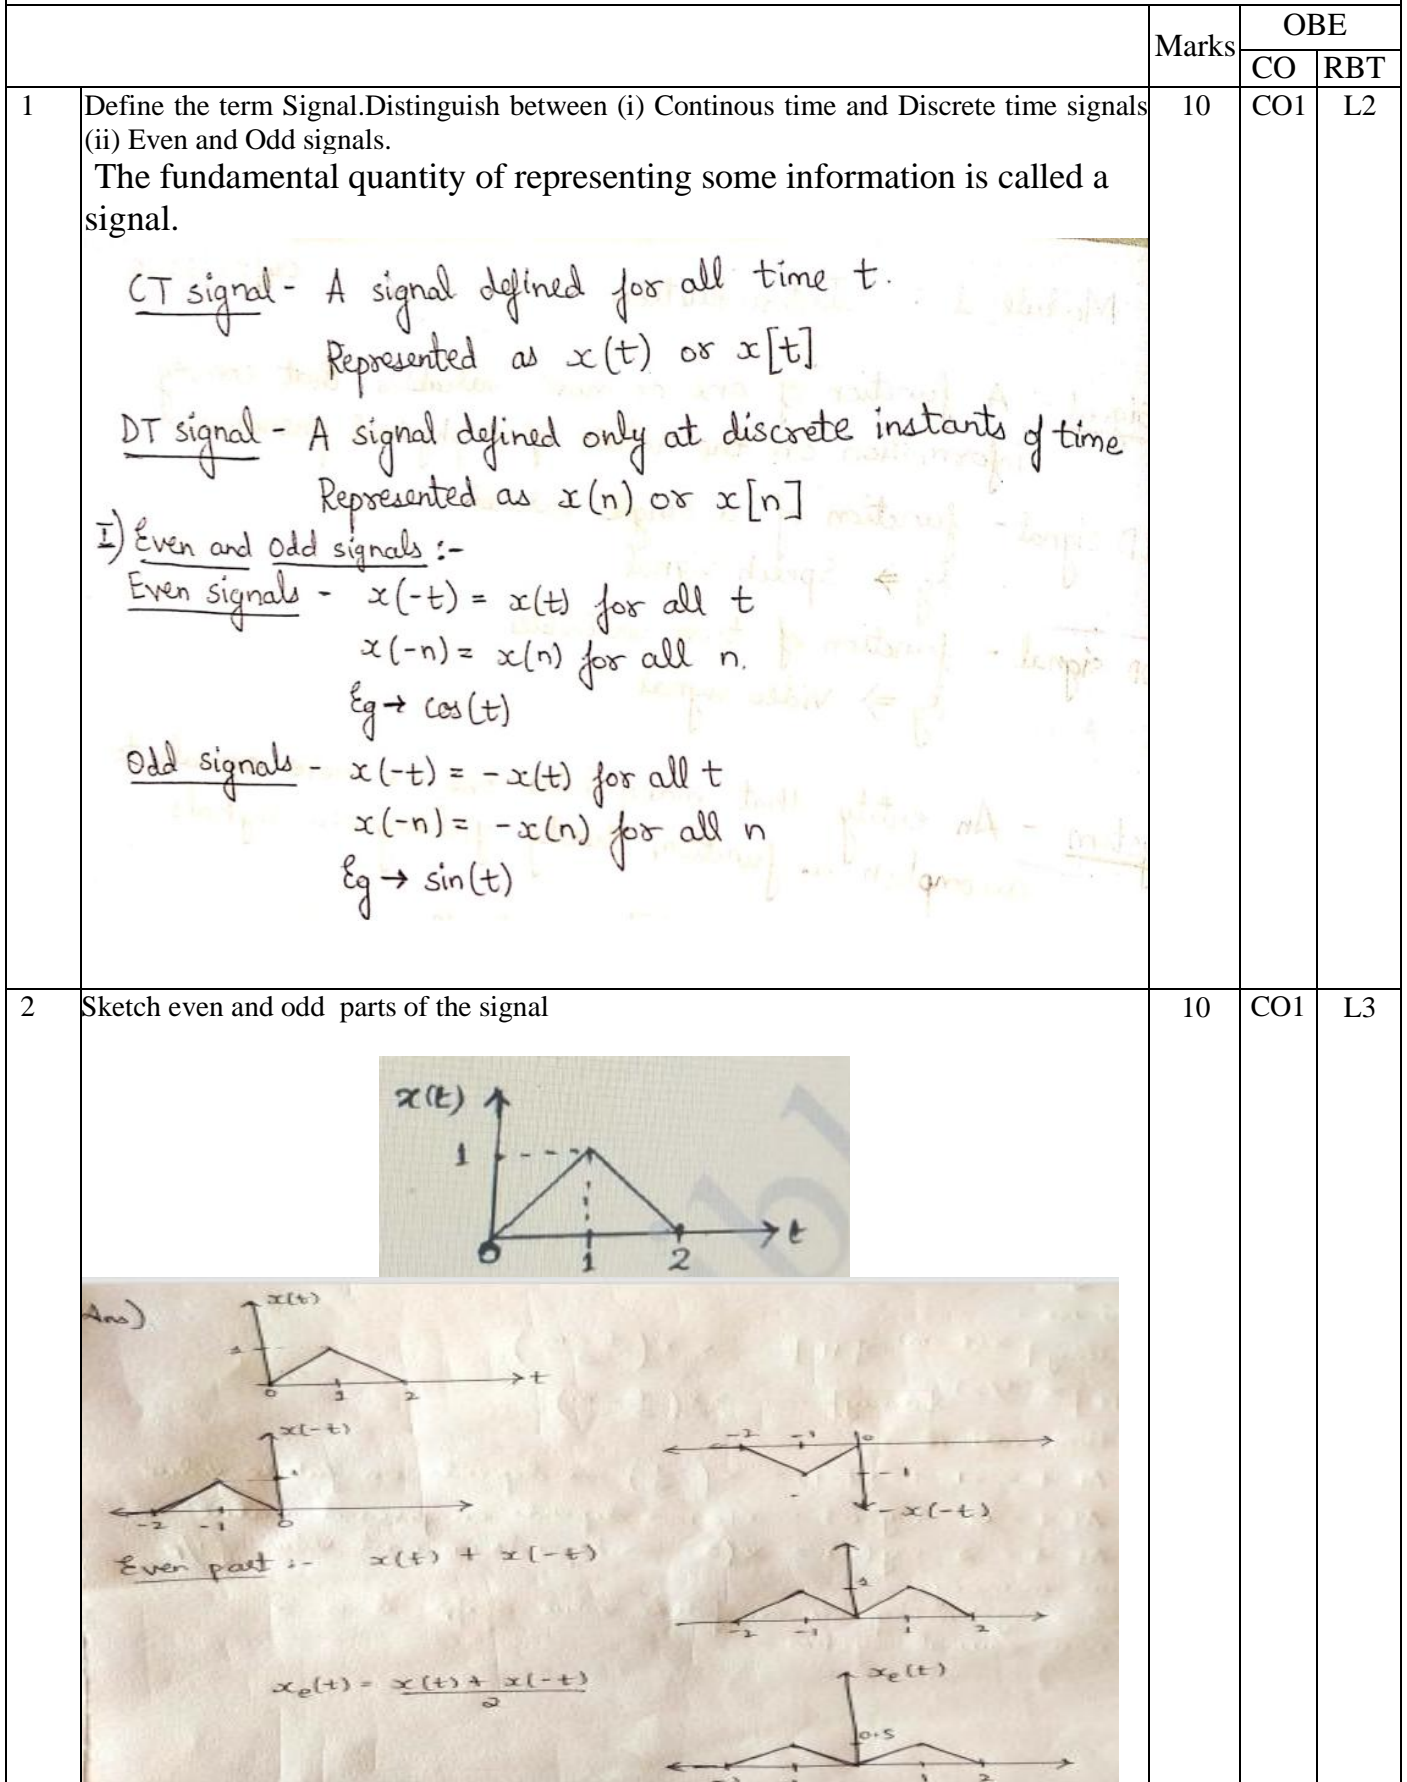 Marks
OBE
CO RBT
1 Define the term Signal.Distinguish between (i) Continous time and Discrete time signals 10 CO1 L2
(ii) Even and Odd signals.
The fundamental quantity of representing some information is called a
signal.
CT signal - A signal defined for all time t.
Represented as x(t) or x[t]
DT signal - A signal defined only at discrete instants of time
Represented as x(n) or x[n]
I) Even and Odd signals :-
Even signals - x(-t) = x(t) for all t
x(-n) = x(n) for all n.
Eg → cos(t)
Odd signals - x(-t) = -x(t) for all t
x(-n) = -x(n) for all n
Eg → sin(t)
2 Sketch even and odd parts of the signal 10 CO1 L3
x(t)
1
0 1 2 t
Ans)
x(t)
1
0 1 2 t
x(-t)
1
-2 -1 0
-2 -1 0
-1
-x(-t)
Even part :- x(t) + x(-t)
1
-2 -1 1 2
xe(t) = x(t) + x(-t)
2
xe(t)
0.5
1 2